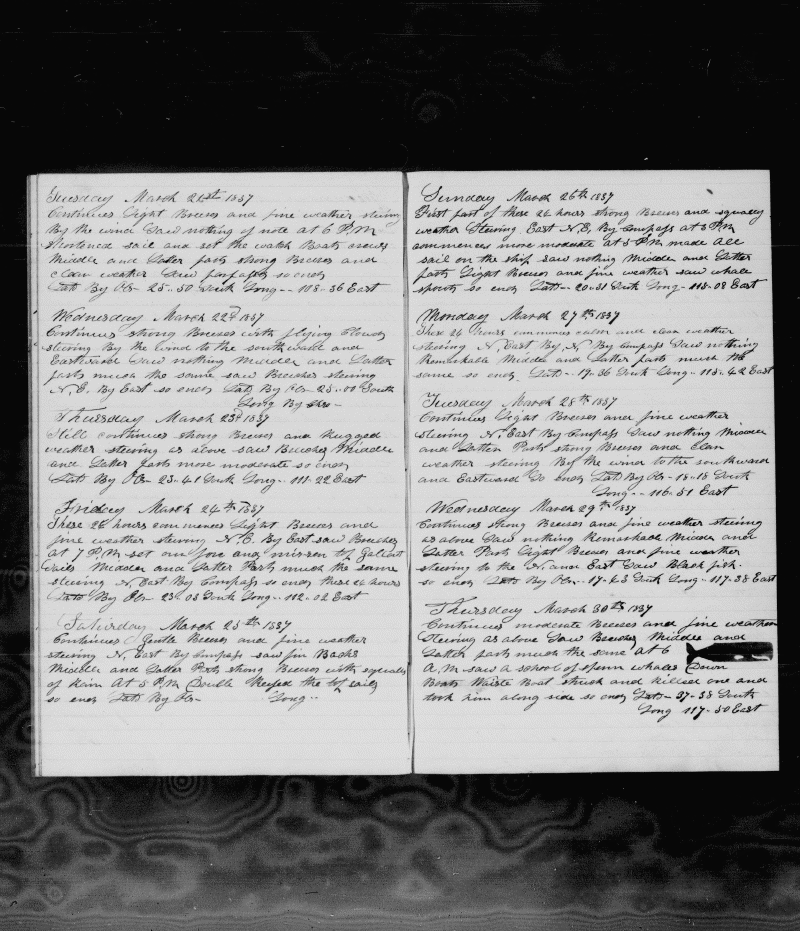 Tuesday March 21st 1837
Continues Light Breeses and fine weather steering
By the wind Saw nothing of note at 6 P,M
Shortened sail and set the watch Boats crews
Middle and Latter parts strong Breeses and
clear weather Saw so ends
Latt By Obr - 25 - 50 South Long - - 108 - 36 East
Wednesday March 22d 1837
Continues strong Breeses with flying Clouds
steering By the wind to the southward and
Eastward Saw nothing Middle and Latter
parts much the same saw Beeches steering
N. E. By East so ends Latt By Obr - 25 - 00 South
Long By Chro -
Thursday March 23d 1837
Still continues strong Breeses and Rugged
weather steering as above saw Beeches Middle
and Latter parts more moderate so ends
Latt By Obr - 23 - 41 South Long - - 111 - 22 East
Friday March 24th 1837
These 24 hours commences Light Breeses and
fine weather steering N. E. By East saw Beeches
at 7 P.M set our fore and missen top Galient
sails Midden and Latter Parts much the same
steering N, East By Compass so ends these 24 hours
Latt By Obr - 23 - 03 South Long - - 112 - 02 East
Saturday March 25th 1837
Continues Gentle Breeses and fine weather
steering N. East By Compass saw fin Backs
Middle and Latter Parts strong Breeses with squalls
of Rain At 5 P,M Double Reefed the top sails
so ends Latt By Obr - Long - -
Sunday March 26th 1837
First part of these 24 hours strong Breeses and squally
weather Steering East N. E, By Compass at 3 P.M
commences more moderate at 5 P.M made All
sail on the ship saw nothing Middle and Latter
parts Light Breeses and fine weather saw whale
spouts so ends Latt - - 20 - 31 South Long - 113 - 08 East
Monday March 27th 1837
These 24 Hours commences calm and clear weather
steering N, East By, N By Compass Saw nothing
Remarkable Middle and Latter parts much the
same so ends. Latt - 19 - 36 South Long - 115 - 42 East
Tuesday March 28th 1837
Continues Light Breeses and fine weather
steering N. East By Compass Saw nothing Midden
and Latter Parts strong Breeses and Clear
weather steering By the wind to the southward
and Eastward So ends Latt By Obr - 18 - 18 South
Long - - 116 - 51 East
Wednesday March 29th 1837
Continues strong Breeses and fine weather steering
as above Saw nothing Remarkable Midden and
Latter Parts Light Breeses and fine weather
steering to the N. and East Saw Black fish.
so ends Latt By Obr. - 17 - 43 South Long - 117 - 38 East
Thursday March 30th 1837
Continues moderate Breeses and fine weather
Steering as above Saw Beeches Middle and
Latter parts much the same at 6
A, M saw a school of sperm whales Down
Boats Waiste Boat struck and killed one and
took him along side so ends Latt - 37 - 38 South
Long 117 - 50 East